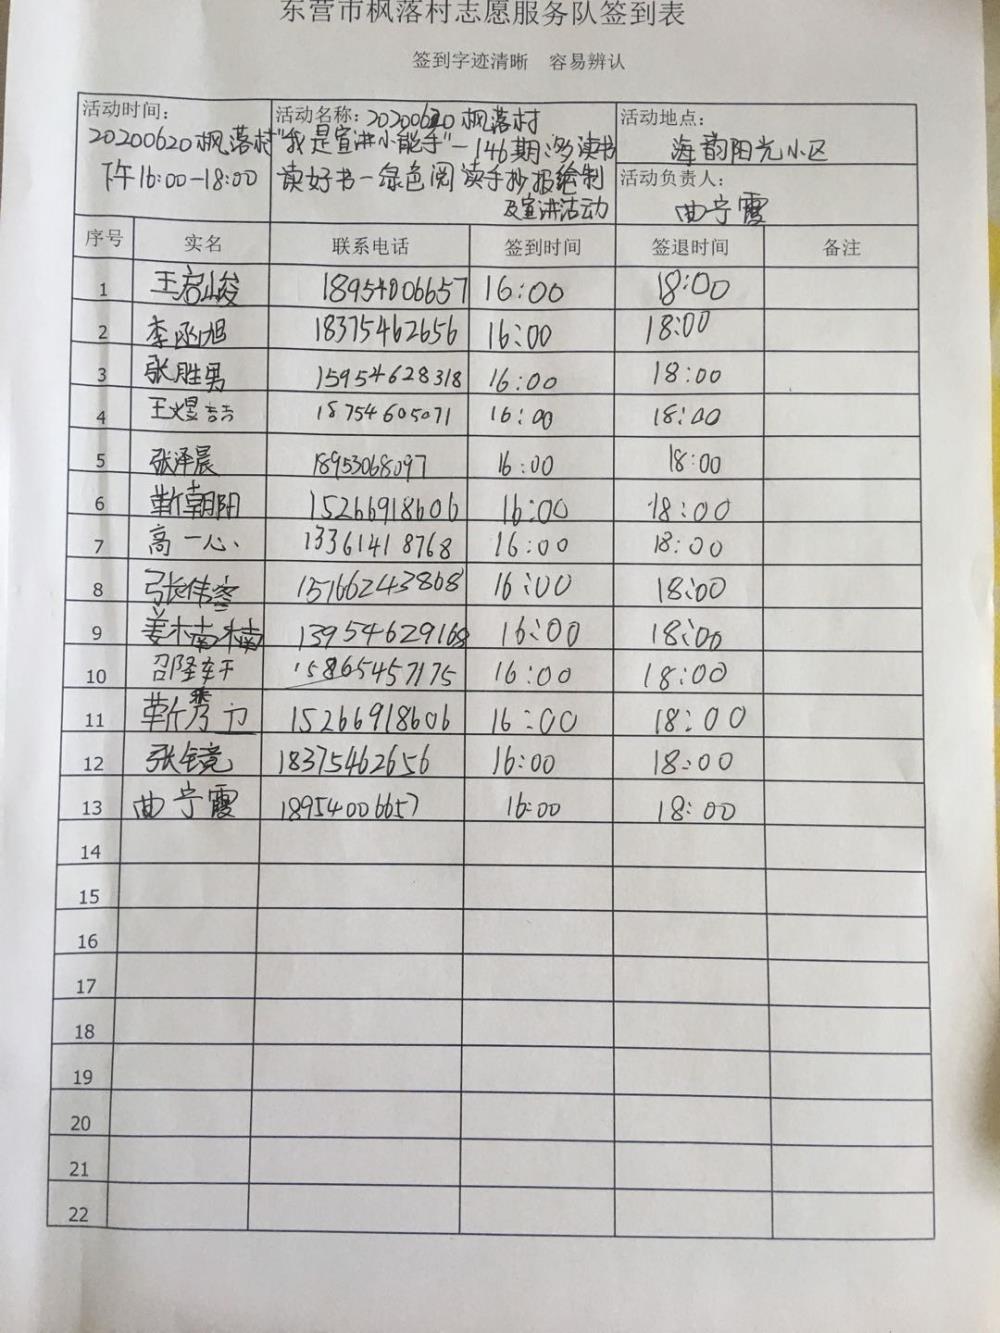 东营市枫落村志愿服务队签到表
签到字迹清晰 容易辨认
活动时间:
20200620枫落村
下午16:00-18:00
活动名称:20200620枫落村
"我是宣讲小能手"-146期:多读书
读好书-绿色阅读手抄报绘制
及宣讲活动
活动地点:
海韵阳光小区
活动负责人:
曲宁霞
序号 实名 联系电话 签到时间 签退时间 备注
1 王启峻 18954006657 16:00 18:00
2 李函旭 18375462656 16:00 18:00
3 张胜男 15954628318 16:00 18:00
4 王煜喆 18754605071 16:00 18:00
5 张泽晨 18953068097 16:00 18:00
6 靳朝阳 15266918606 16:00 18:00
7 高一心 13361418768 16:00 18:00
8 张伟 15166243868 16:00 18:00
9 姜楠楠 13954629168 16:00 18:00
10 邵隆轩 15865457175 16:00 18:00
11 靳秀 15266918606 16:00 18:00
12 张镜 18375462656 16:00 18:00
13 曲宁霞 18954006657 16:00 18:00
14
15
16
17
18
19
20
21
22